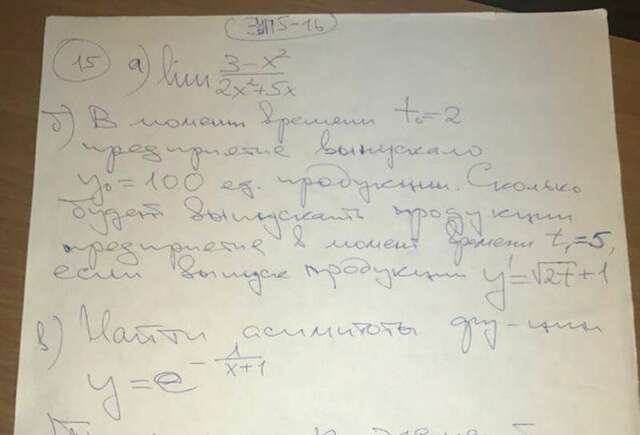 ЭЛП5-16
15 а) lim (3-x²)/(2x²+5x)
б) В момент времени t₀=2
предприятие выпускало
y₀=100 ед. продукции. Сколько
будет выпускать продукции
предприятие в момент времени t₁=5,
если выпуск продукции y'=√27+1
в) Найти асимптоты фу-ции
y=e^(-1/(x+1))